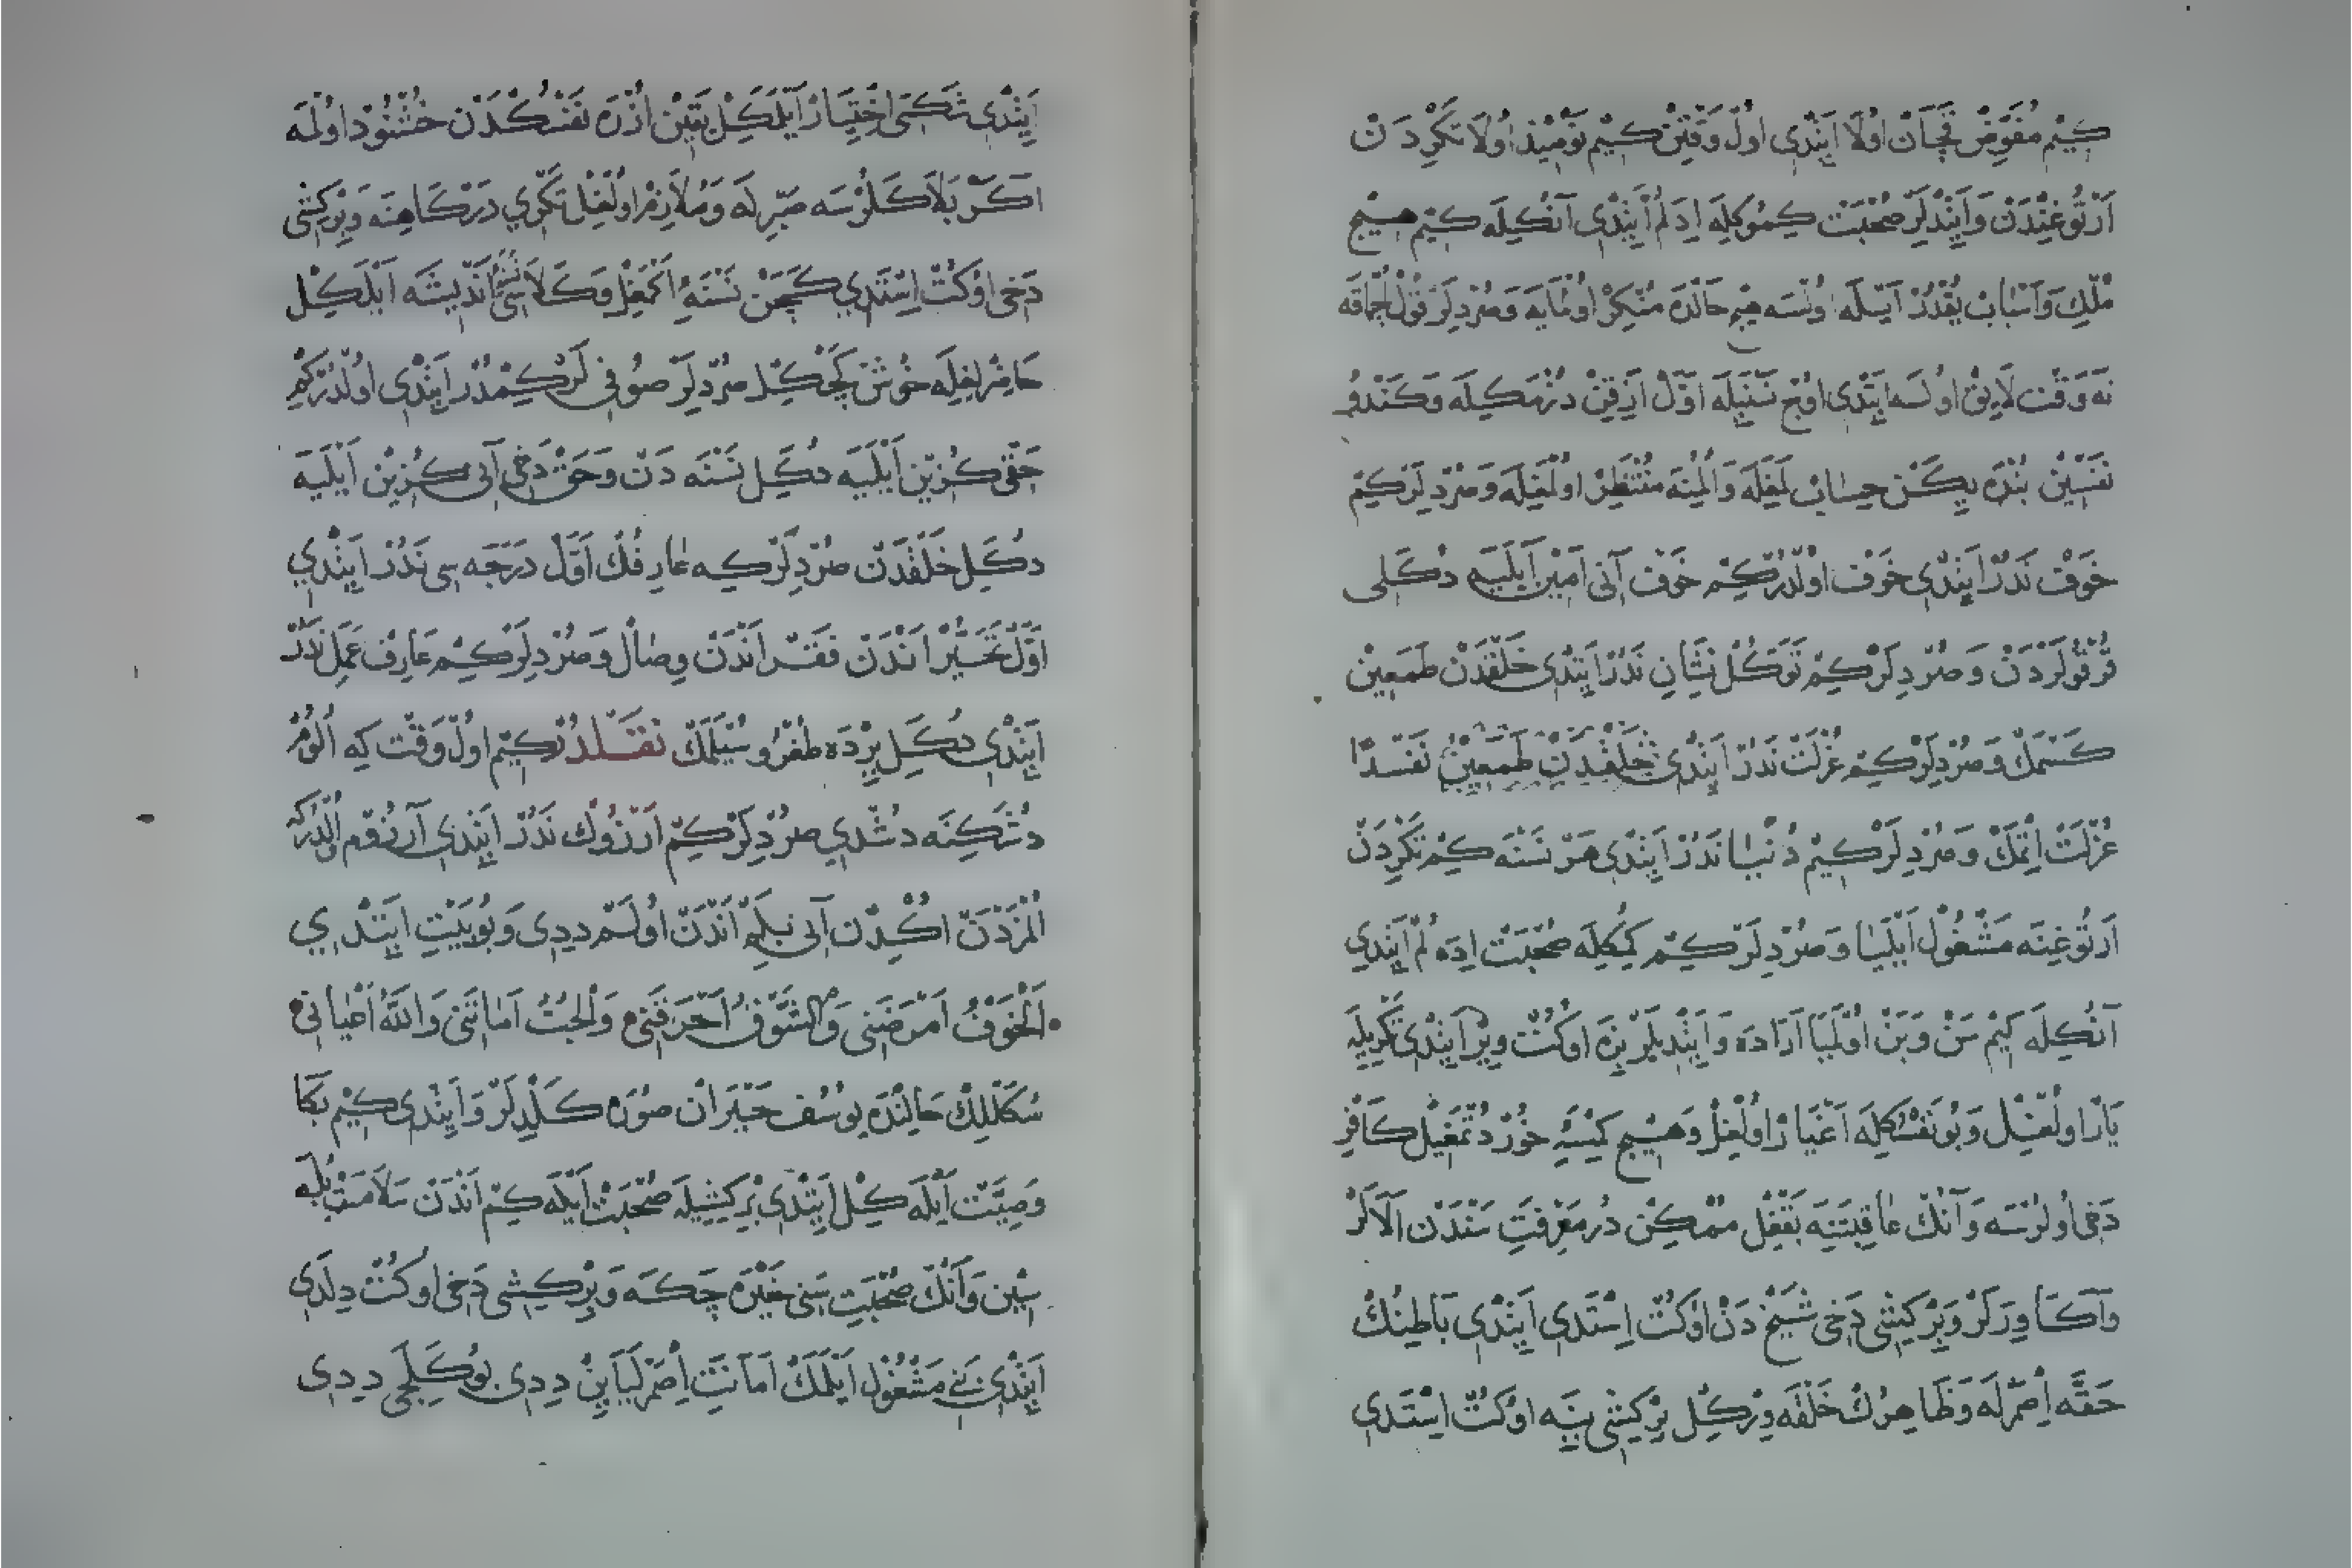 كيم مفوض قچان اولا ايتدى اول وقتن كيم نوميذ اولا تكرى دن
ارتوغندن و ايتديلر صحبت كموكله ايده لم ايتدى آنكيله كيم هيچ
ملك و اسباب يقدر ايسله اولسه هيچ حالده منكر اولمايه و صرديلر قول الجماقه
نه وقت لايق اولسه ايتدى اوچ نسنيله اول ازقن درمكيله و كندو
نفسين بنده بيكن حساب لمغله و المنه منتظر اولمغله و صرديلر كيم
خوف ندر ايتدى خوف اولدر كيم خوف آنى امين ايليه دكلى
قورقولردن و صرديلر كيم توكل نشان ندر ايتدى خلقدن طمعين
كسمك و صرديلر كيم عزلت ندر ايتدى خلقدن طمعين نفسدا
عزلت اتمك و صرديلر كيم دنيا ندر ايتدى هر نسنه كيم تكريدن
ارتوغنه مشغول ايليا و صرديلر كيم كمكله صحبت ايده لم ايتدى
آنكله كيم سن و بن اوليا اراده و ايتديلر بزه اوكت وير ايتدى تكريله
يار اولغل و بو نفسكله اغيار اولغل و هيچ كمسيه خورد تمغل كافر
دخى اولرسه و آنك عاقبتنه بقغل ممكن در معرفت سندن آلالر
و آكا ويرلر و بر كيشى دخى شيخ دن اوكت استدى ايتدى باطنك
حقه اصمرله و ظاهرك خلقه ويركل بر كيشى ينه اوكت استدى
ايتدى شكى اختيار ايلمكل يقين ازره نفسكدن خشنود اولمه
اكر بلا كلورسه صبرله و ملازم اولغل تكرى دركاهنه و بر كشى
دخى اوكت استدى كچمن نسنه اكمغل و كلاسى انديشه ايلمكل
حاضرلغله خوش كچكل صرديلر صوفى لر كيمدر ايتدى اولدر كيم
حقى كزين ايليه دكل نسنه دن و حق دخى آنى كزين ايليه
دكل خلقدن صرديلر كه عارفك اول درجه سى ندر ايتدى
اول تحير اندن فقر اندن وصال و صرديلر كيم عارف عمل ندر
ايتدى دكل يرده طغرو سيلمك نقلدر كيم اول وقت كه الوم
دشكنه دشدى صرديلر كيم ارزوك ندر ايتدى آرزوم الدر كه
المزدن اكدن آنى بيلم اندن اولسم ديدى و بو بيت ايتدى
الخوف امرضنى والشوق احرقنى والحب اماتنى والله احيانى
سكللك حالنده يوسف حيران صوره كلديلر و ايتدى كيم بكا
وصيت ايله كل ايتدى بر كيشيله صحبت ايله كيم اندن سلامت بله
سين و آنك صحبت سنى خيره چكه و بر كيشى دخى اوكت ديلدى
ايتدى بنى مشغول ايلمك امانت اصمرليابن ديدى بوكلجى ديدى